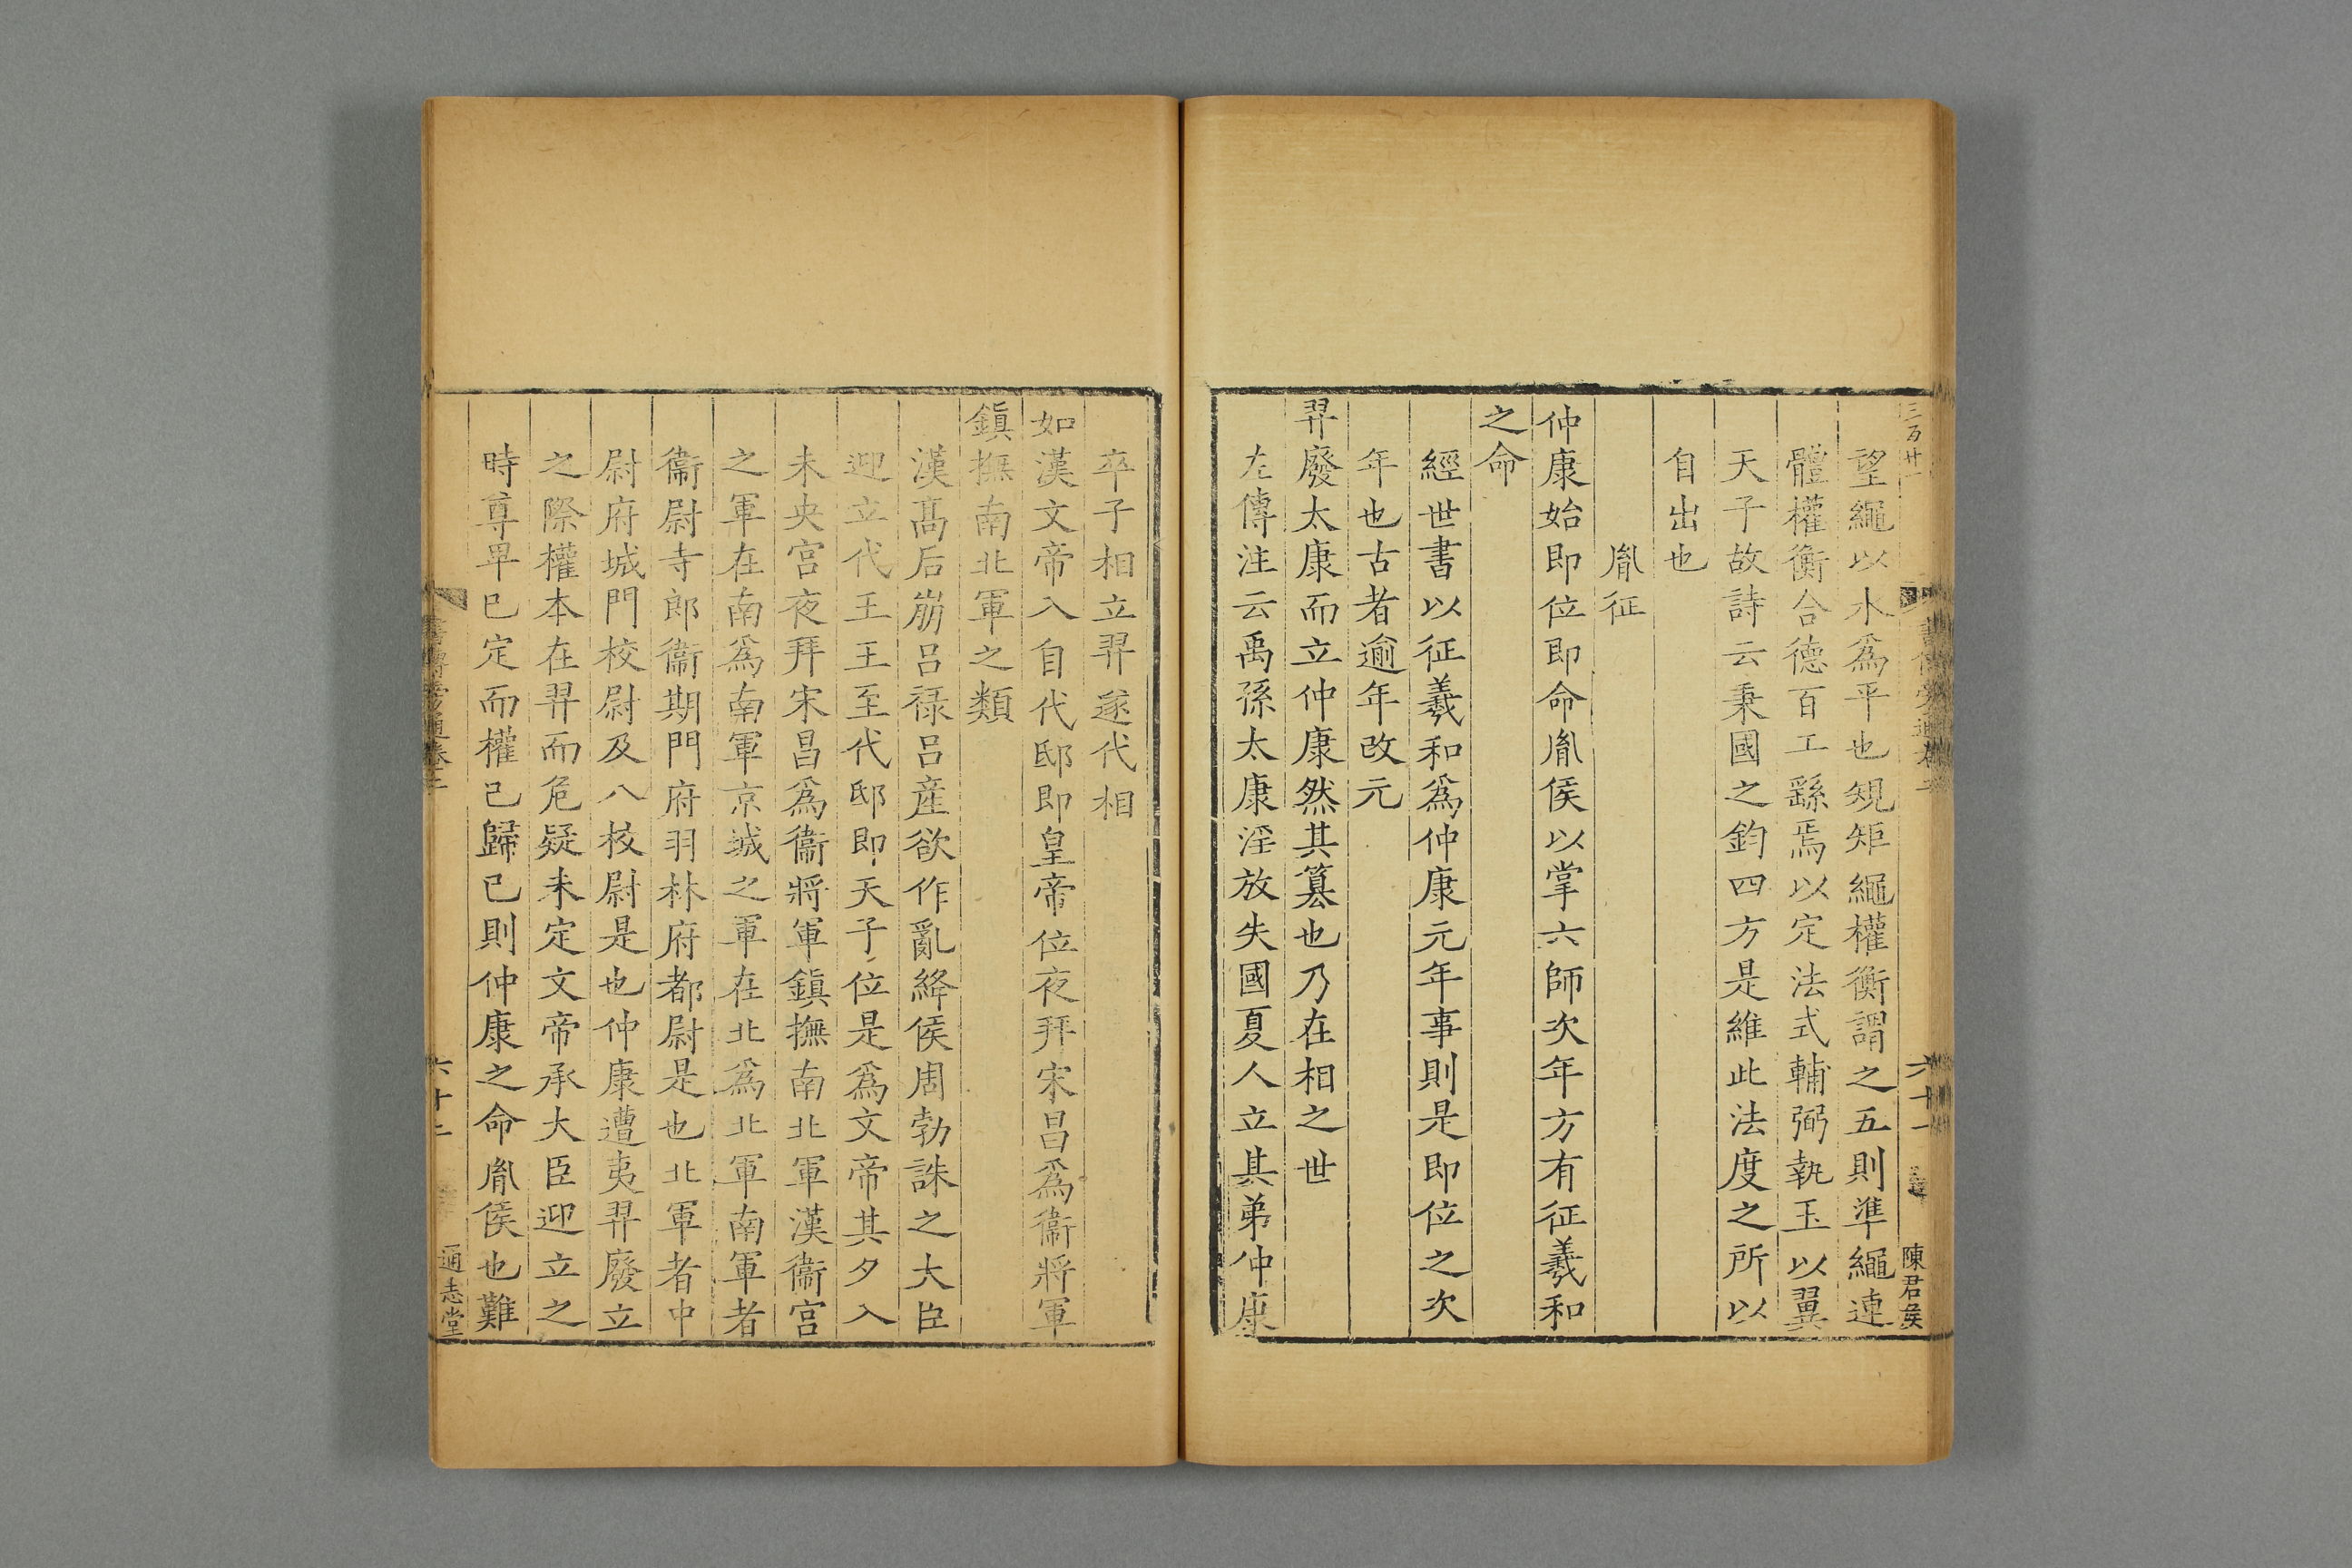 三百廿一
望繩以水爲平也規矩繩權衡謂之五則準繩連
體權衡合德百工繇焉以定法式輔弼執玉以翼
天子故詩云秉國之鈞四方是維此法度之所以
自出也
胤征
仲康始即位即命胤侯以掌六師次年方有征羲和
之命
經世書以征羲和爲仲康元年事則是即位之次
年也古者逾年改元
羿廢太康而立仲康然其篡也乃在相之世
左傳注云禹孫太康淫放失國夏人立其弟仲康
六十一
陳君矦
卒子相立羿遂代相
如漢文帝入自代邸即皇帝位夜拜宋昌爲衞將軍
鎮撫南北軍之類
漢髙后崩呂禄呂産欲作亂絳侯周勃誅之大臣
迎立代王王至代邸即天子位是爲文帝其夕入
未央宫夜拜宋昌爲衞將軍鎮撫南北軍漢衞宫
之軍在南爲南軍京城之軍在北爲北軍南軍者
衞尉寺郎衞期門府羽林府都尉是也北軍者中
尉府城門校尉及八校尉是也仲康遭夷羿廢立
之際權本在羿而危疑未定文帝承大臣迎立之
時尊卑已定而權已歸已則仲康之命胤侯也難
書傳旁通卷二
六十二
通志堂